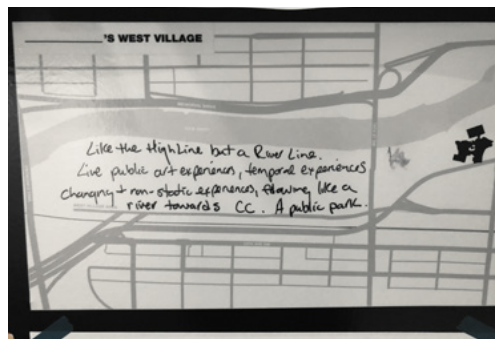 'S WEST VILLAGE
MEMORIAL DRIVE
Like the HighLine but a River Line.
Live public art experiences, temporal experiences
changing + non-static experiences, flowing like a
river towards CC. A public park.